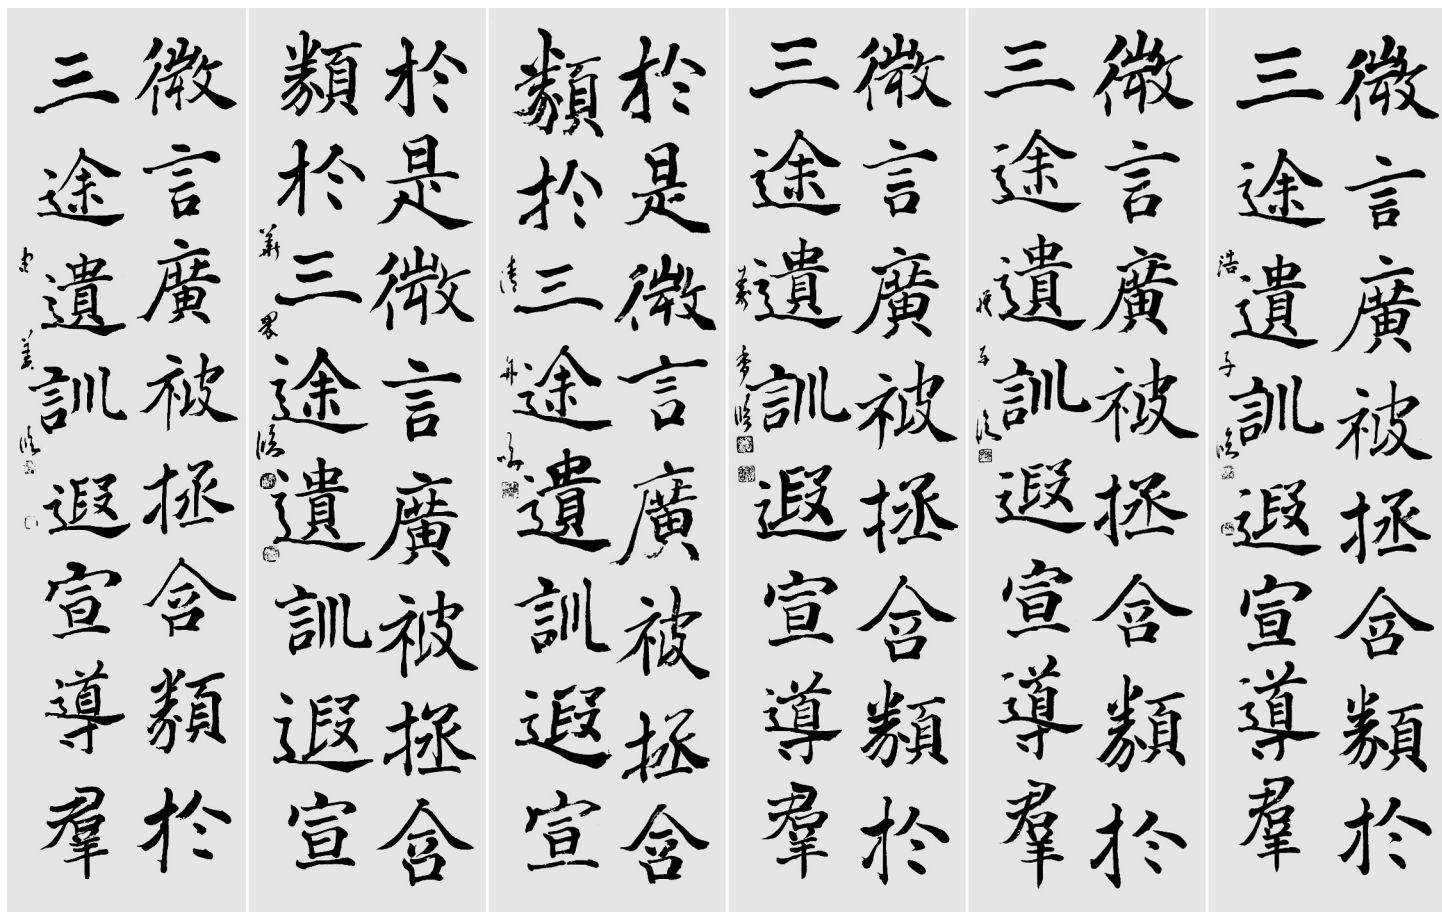 微言廣被拯含類於
三途遺訓遐宣導羣
浩子臨
微言廣被拯含類於
三途遺訓遐宣導羣
臨
微言廣被拯含類於
三途遺訓遐宣導羣
臨
於是微言廣被拯含
類於三途遺訓遐宣
清舟
於是微言廣被拯含
類於三途遺訓遐宣
臨
微言廣被拯含類於
三途遺訓遐宣導羣
美臨